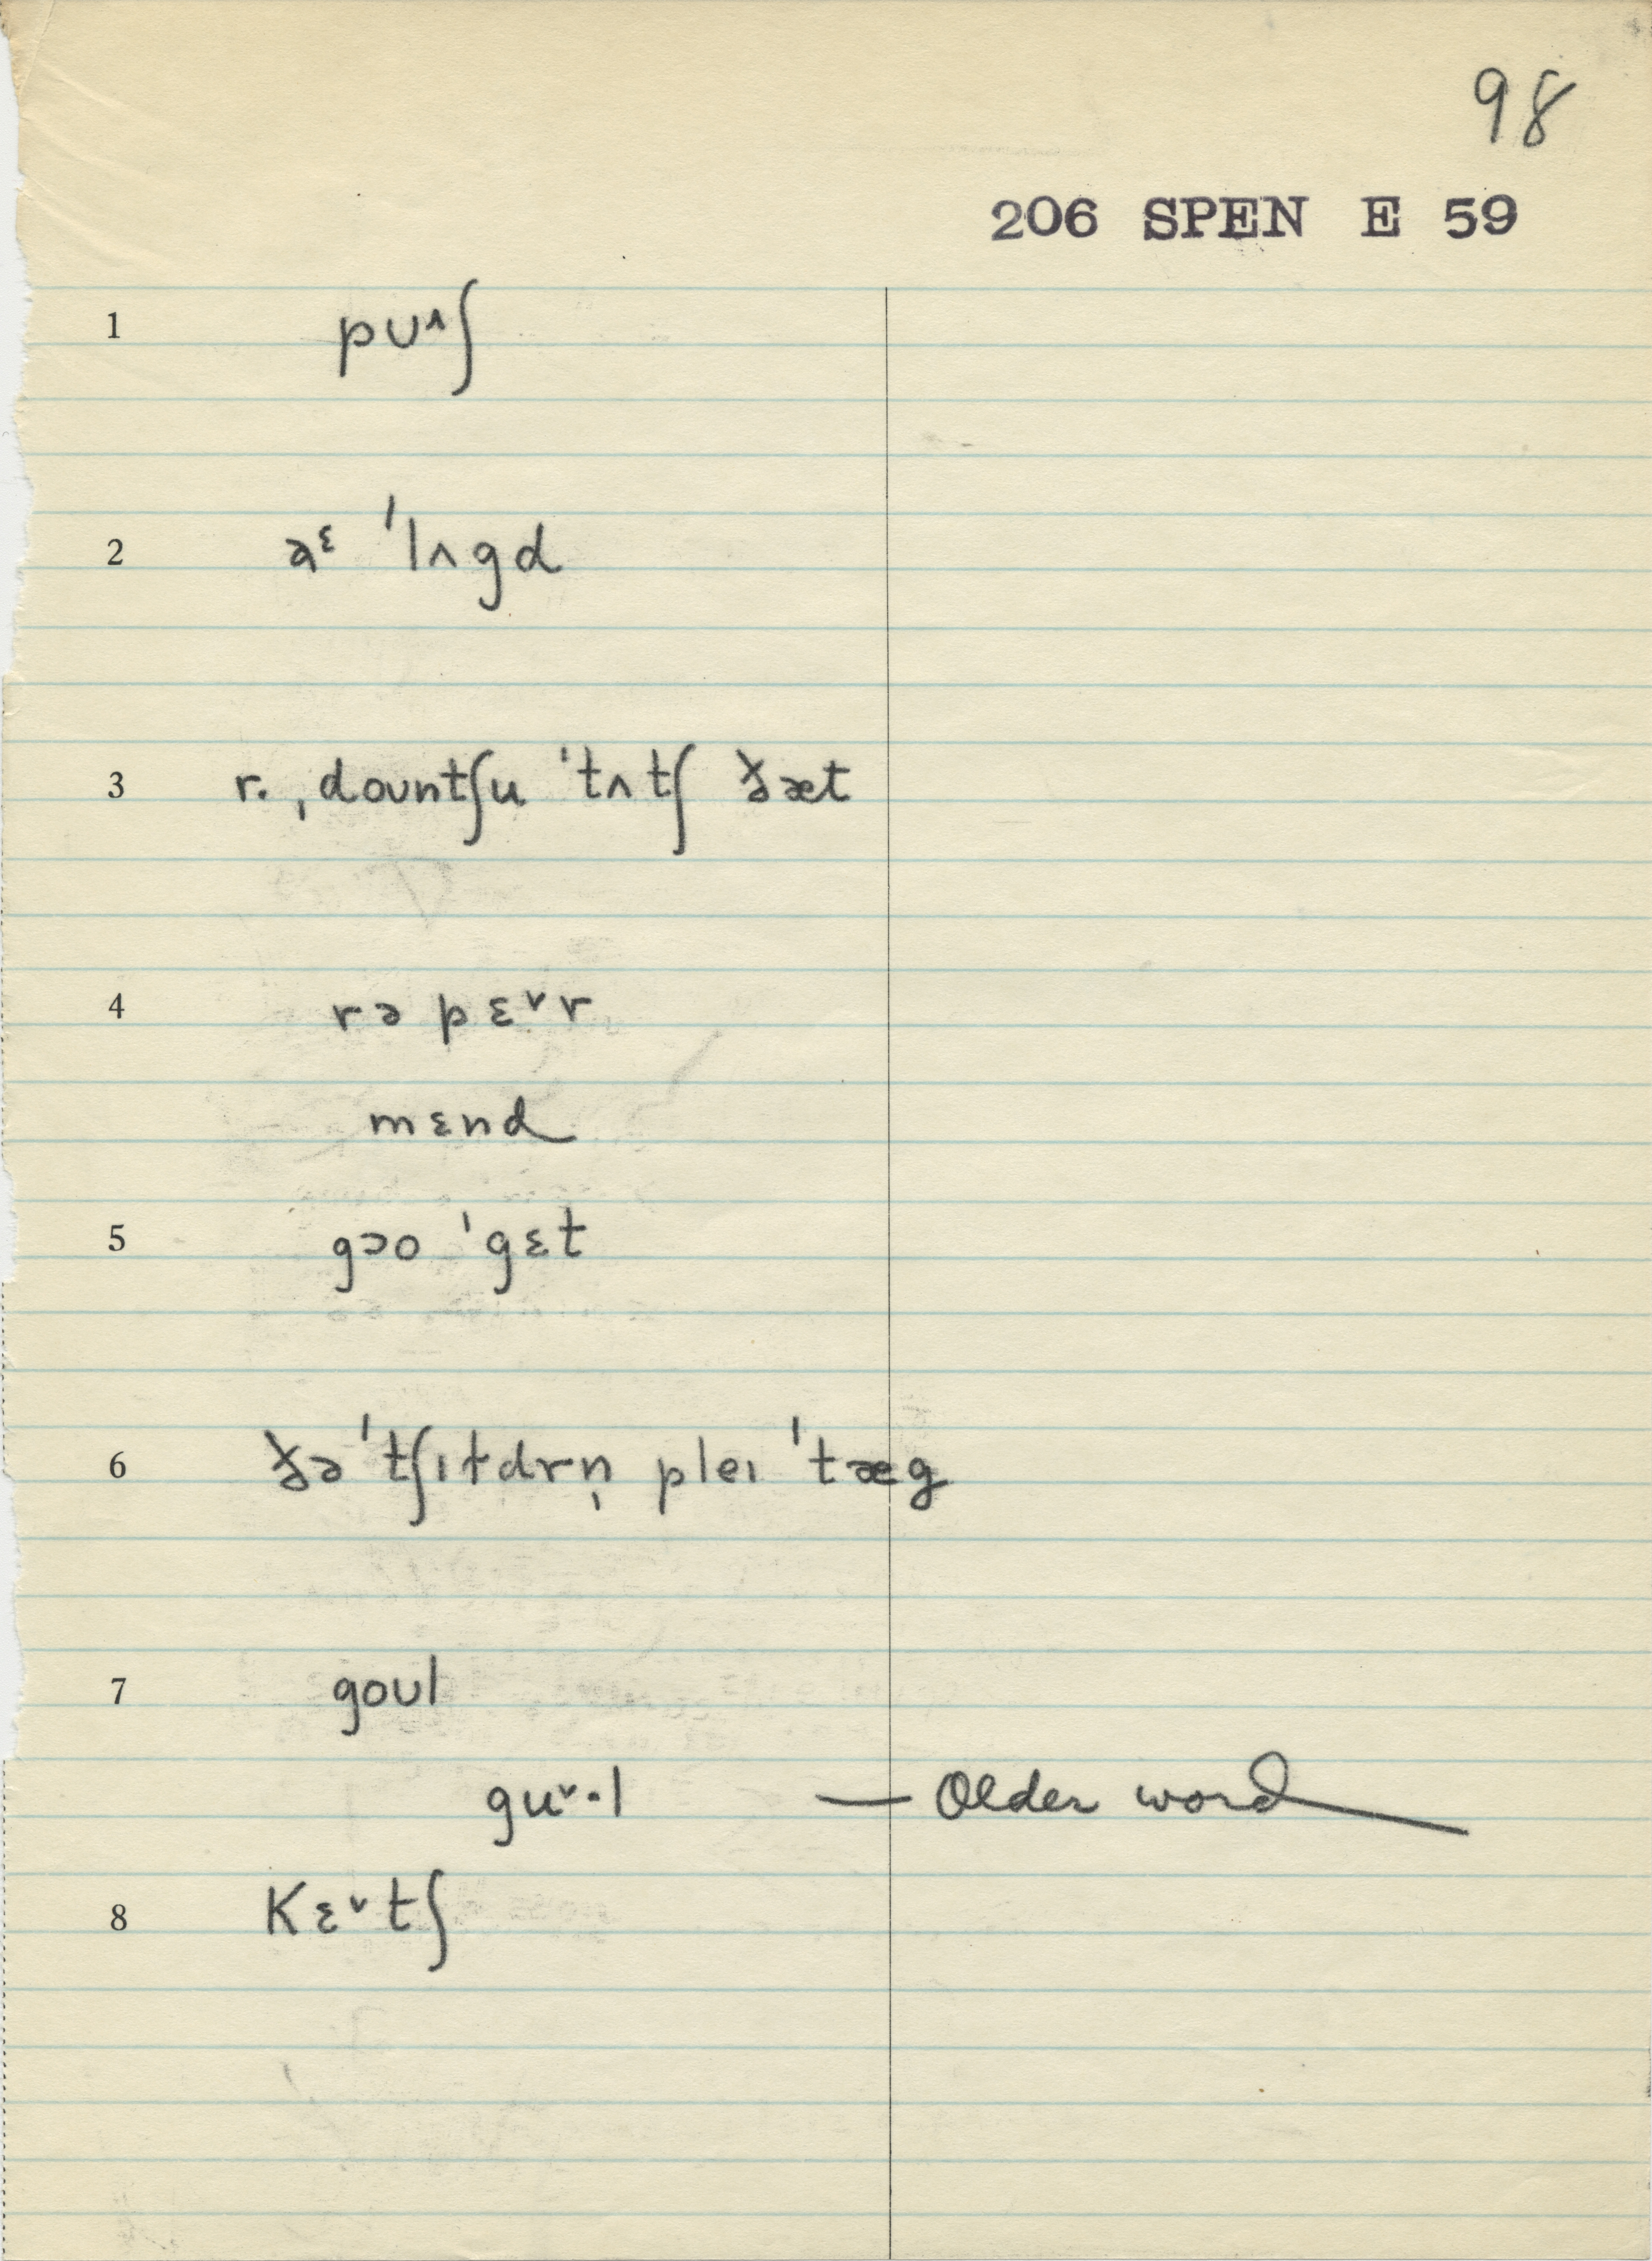 98
206 SPEN E 59
1 pᴜ^ʃ
2 əᵋ ˈlʌgd
3 r. ˌdoᴜntʃu ˈtʌtʃ ðæt
4 rə pɛˇr
mɛnd
5 gɔo ˈgɛt
6 ðə ˈtʃɪɫdrn̩ pleɪ ˈtæg
7 goᴜl
guˇ·l — Older word
8 Kɛˇtʃ